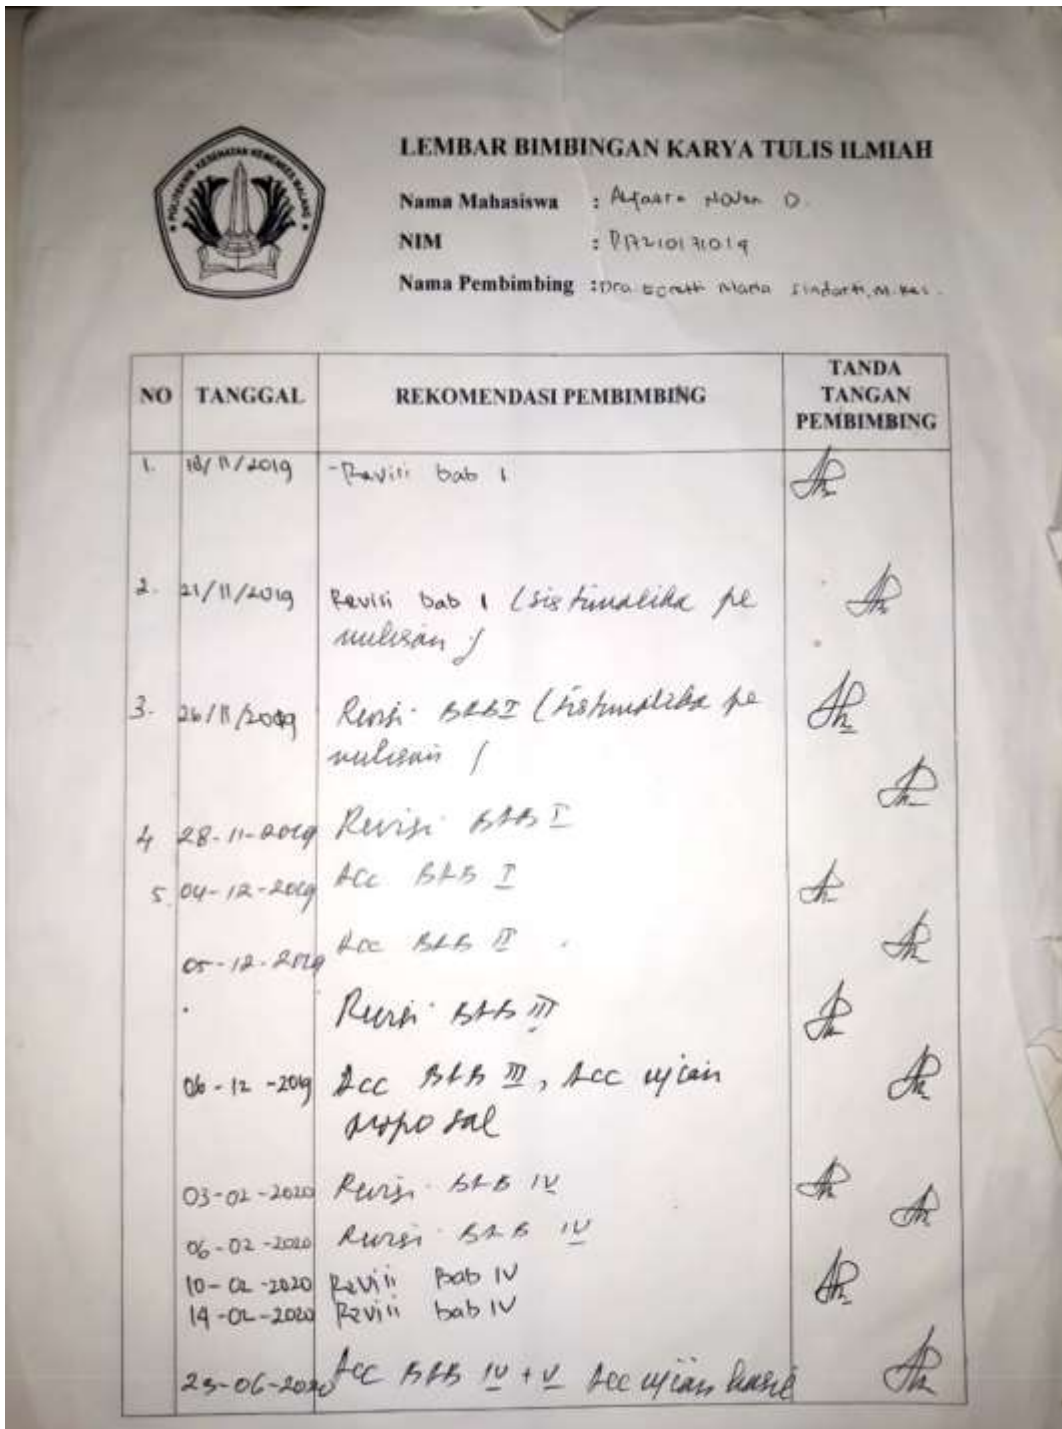 POLITEKNIK KESEHATAN KEMENKES MALANG
LEMBAR BIMBINGAN KARYA TULIS ILMIAH
Nama Mahasiswa :
NIM : P17210171019
Nama Pembimbing : Dra. Maria Sindarti, M.Kes.
NO TANGGAL REKOMENDASI PEMBIMBING TANDA TANGAN PEMBIMBING
1. 18/11/2019 -Revisi bab 1
2. 21/11/2019 Revisi bab 1 (sistimatika pe
nulisan)
3. 26/11/2019 Revisi BAB I (sistimatika pe
nulisan)
4 28-11-2019 Revisi BAB I
5. 04-12-2019 Acc BAB I
05-12-2019 Acc BAB II
Revisi BAB III
06-12-2019 Acc BAB III, Acc ujian
proposal
03-02-2020 Revisi BAB IV
06-02-2020 Revisi BAB IV
10-02-2020 Revisi Bab IV
14-02-2020 Revisi bab IV
23-06-2020 Acc BAB IV + V Acc ujian hasil